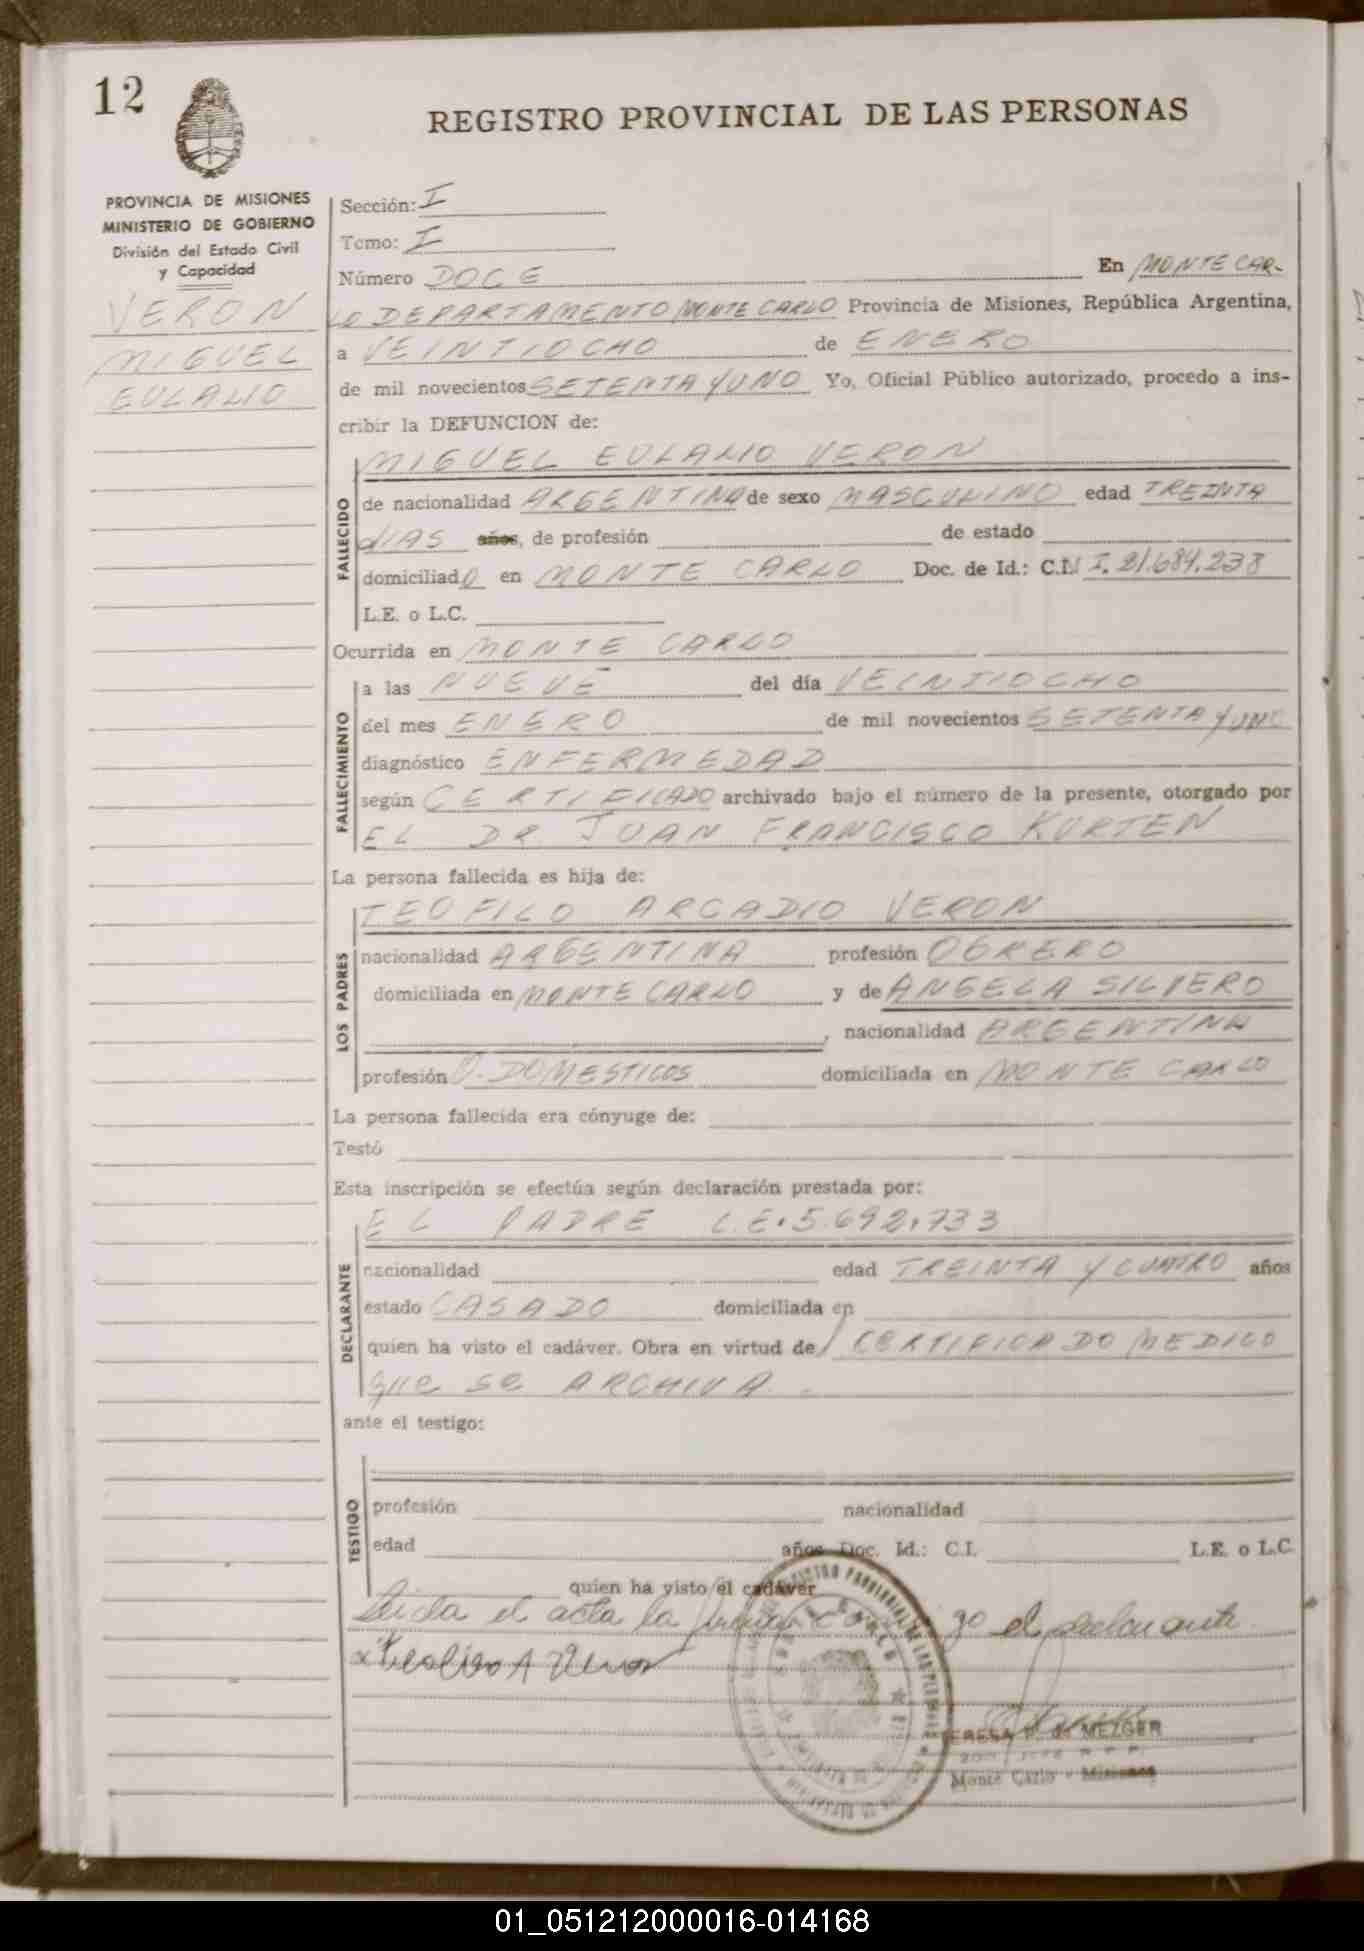 12
REGISTRO PROVINCIAL DE LAS PERSONAS
PROVINCIA DE MISIONES
MINISTERIO DE GOBIERNO
División del Estado Civil
y Capacidad
VERON
MIGUEL
EULALIO
Sección: I
Tomo: I
Número DOCE En MONTE CAR-
LO DEPARTAMENTO MONTE CARLO Provincia de Misiones, República Argentina,
a VEINTIOCHO de ENERO
de mil novecientos SETENTA Y UNO Yo, Oficial Público autorizado, procedo a ins-
cribir la DEFUNCION de:
MIGUEL EULALIO VERON
FALLECIDO
de nacionalidad ARGENTINA de sexo MASCULINO edad TREINTA
DIAS años, de profesión de estado
domiciliado en MONTE CARLO Doc. de Id.: C.N I. 21.684.238
L.E. o L.C.
Ocurrida en MONTE CARLO
FALLECIMIENTO
a las NUEVE del día VEINTIOCHO
del mes ENERO de mil novecientos SETENTA Y UNO
diagnóstico ENFERMEDAD
según CERTIFICADO archivado bajo el número de la presente, otorgado por
EL DR. JUAN FRANCISCO KURTEN
La persona fallecida es hija de:
TEOFILO ARCADIO VERON
LOS PADRES
nacionalidad ARGENTINA profesión OBRERO
domiciliada en MONTE CARLO y de ANGELA SILVERO
, nacionalidad ARGENTINA
profesión Q. DOMESTICOS domiciliada en MONTE CARLO
La persona fallecida era cónyuge de:
Testó
Esta inscripción se efectúa según declaración prestada por:
EL PADRE L.E. 5.692.733
DECLARANTE
nacionalidad edad TREINTA Y CUATRO años
estado CASADO domiciliada en
quien ha visto el cadáver. Obra en virtud de CERTIFICADO MEDICO
que se ARCHIVA.
ante el testigo:
TESTIGO
profesión nacionalidad
edad años Doc. Id.: C.I. L.E. o L.C.
quien ha visto el cadáver
Leida el acta la firma go el declarante
TERESA P. de MEZGER
Monte Carlo - Misiones
01_051212000016-014168